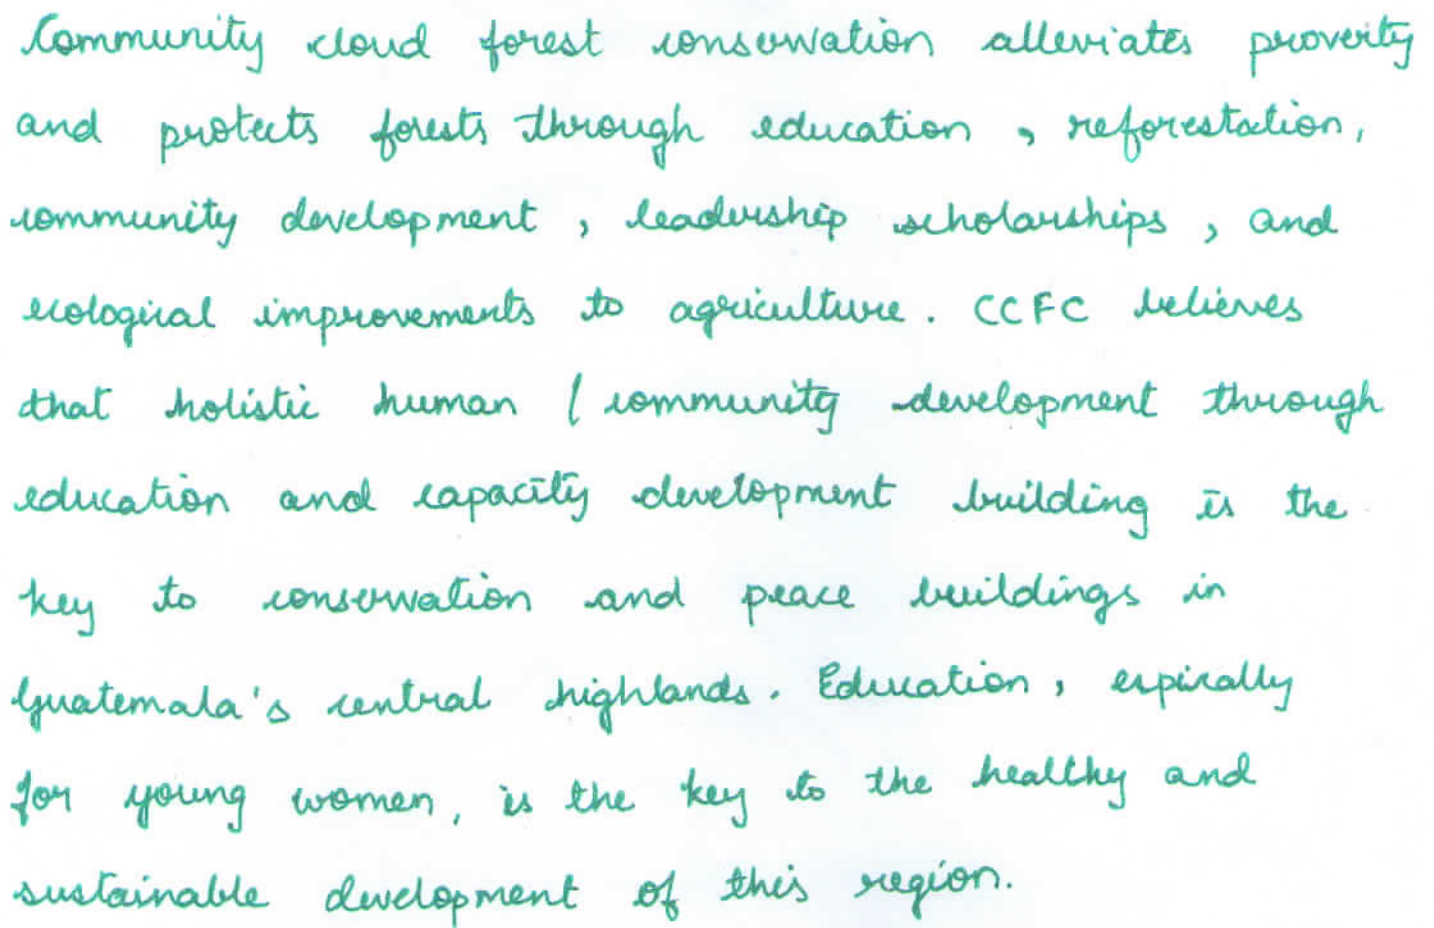 Community cloud forest conservation alleviates proverty
and protects forests through education , reforestation,
community development , leadership scholarships , and
ecological improvements to agriculture. CCFC believes
that holistic human / community development through
education and capacity development building is the
key to conservation and peace buildings in
Guatemala's central highlands. Education, espically
for young women, is the key to the healthy and
sustainable development of this region.